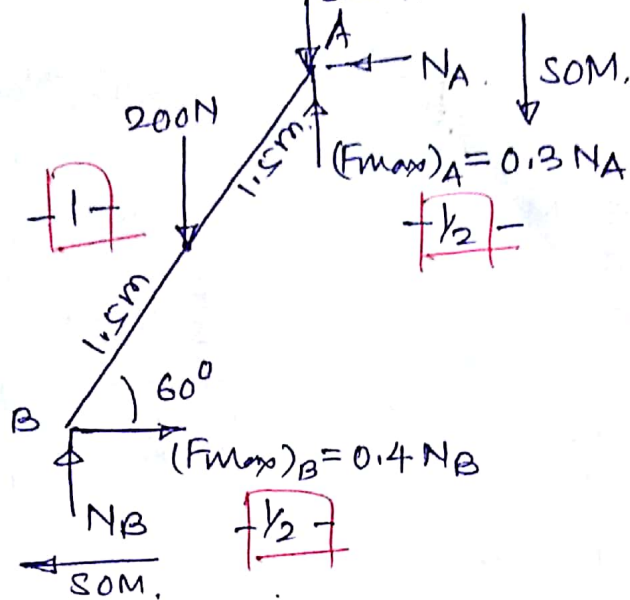 A
NA.
SOM.
200N
1.5m
(Fmax)A = 0.3 NA
1
1/2
1.5m
60°
B
(Fmax)B = 0.4 NB
NB
1/2
SOM.